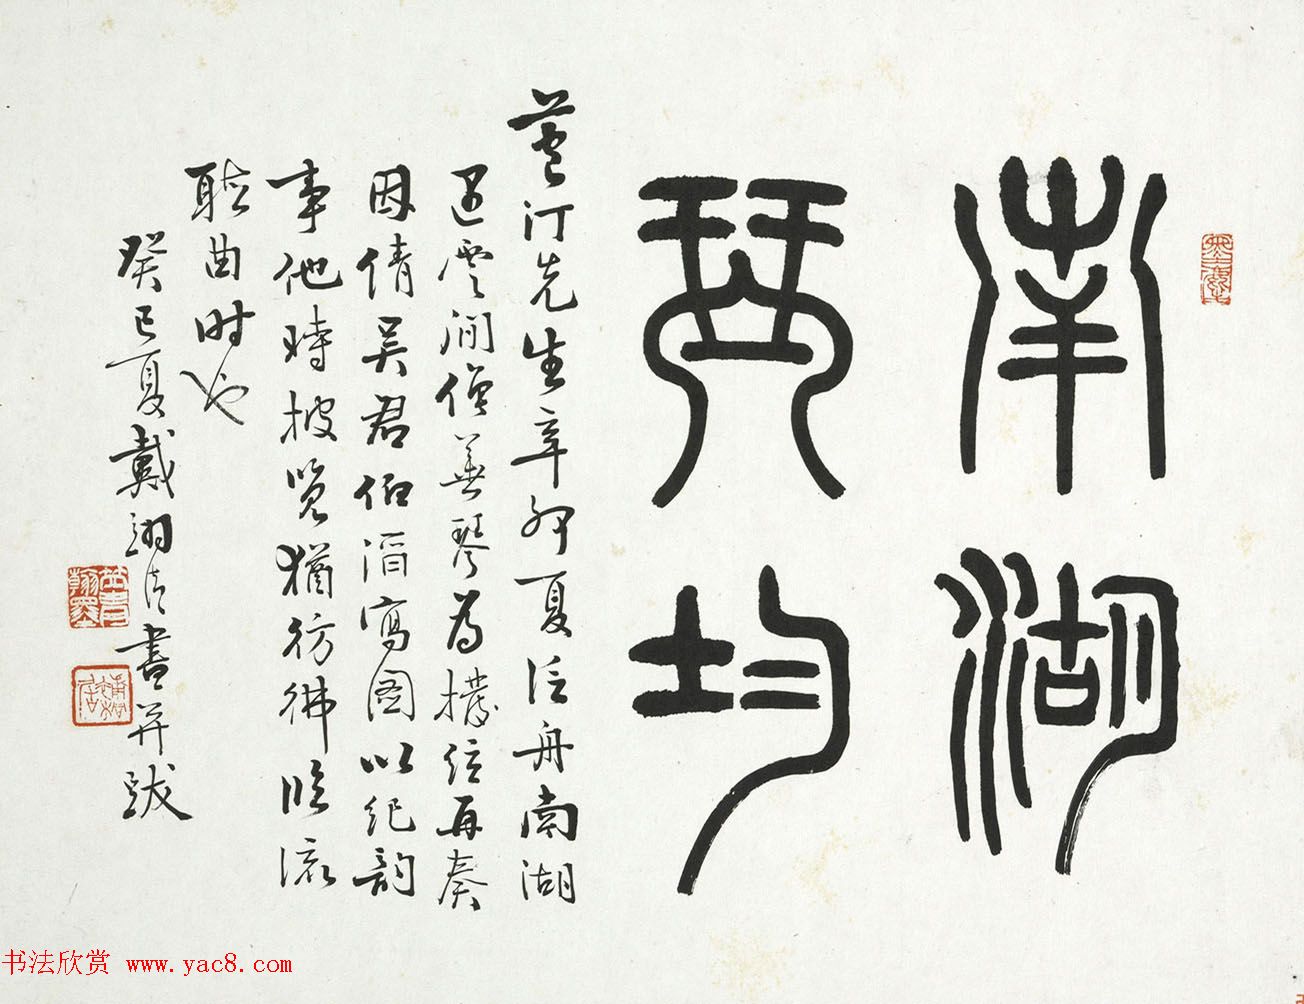 南湖
琴均
芦汀先生辛卯夏泛舟南湖
遇雲澗僧善琴為據信再奏
因倩吴君伯滔寫圖以纪韵
事他時披览猶彷彿临流
聴曲时也
癸巳夏戴翊清書并跋
书法欣赏 www.yac8.com